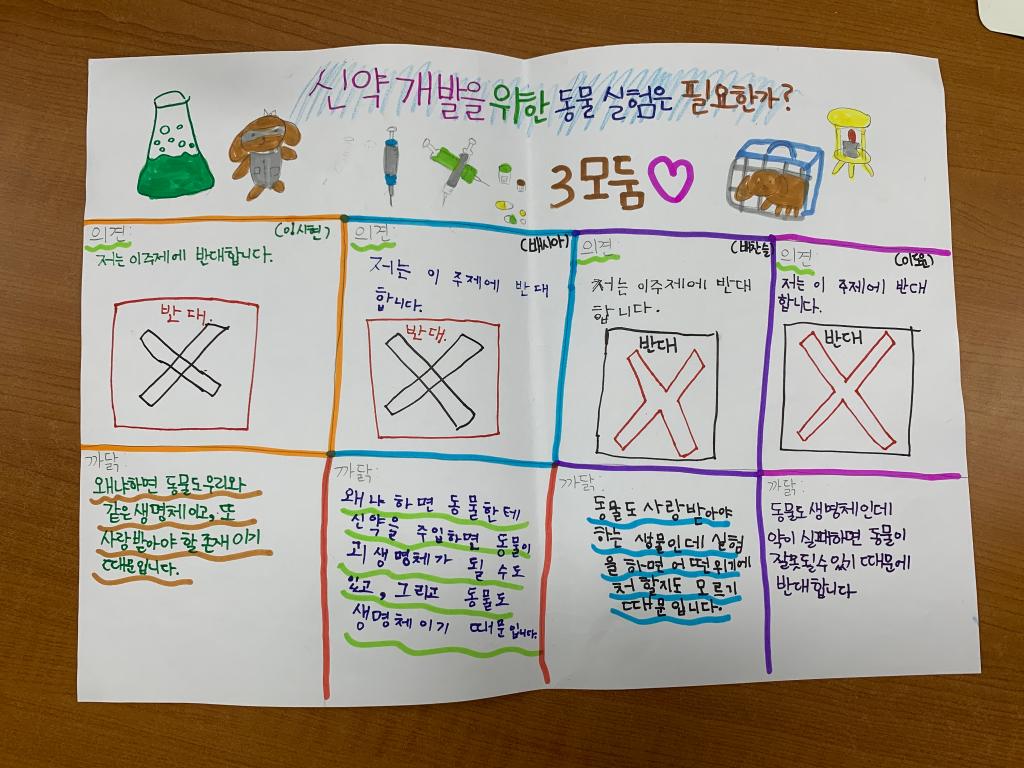 신약 개발을 위한 동물 실험은 필요한가?
3모둠
의견: (임시현)
저는 이주제에 반대합니다.
반대.
까닭:
왜냐하면 동물도우리와
같은생명체이고, 또
사랑받아야 할 존재 이기
때문입니다.
의견: (배시아)
저는 이 주제에 반대
합니다.
반대.
까닭:
왜냐 하면 동물한테
신약을 주입하면 동물이
생명체가 될 수도
있고, 그리고 동물도
생명체이기 때문입니다.
의견: (배찬슬)
저는 이주제에 반대
합니다.
반대
까닭:
동물도 사랑받아야
하는 생물인데 실험
을 하면 어떤위기에
처할지도 모르기
때문입니다.
의견:
저는 이 주제에 반대
합니다.
반대
까닭:
동물도 생명체인데
약이 실패하면 동물이
잘못될수 있기 때문에
반대합니다